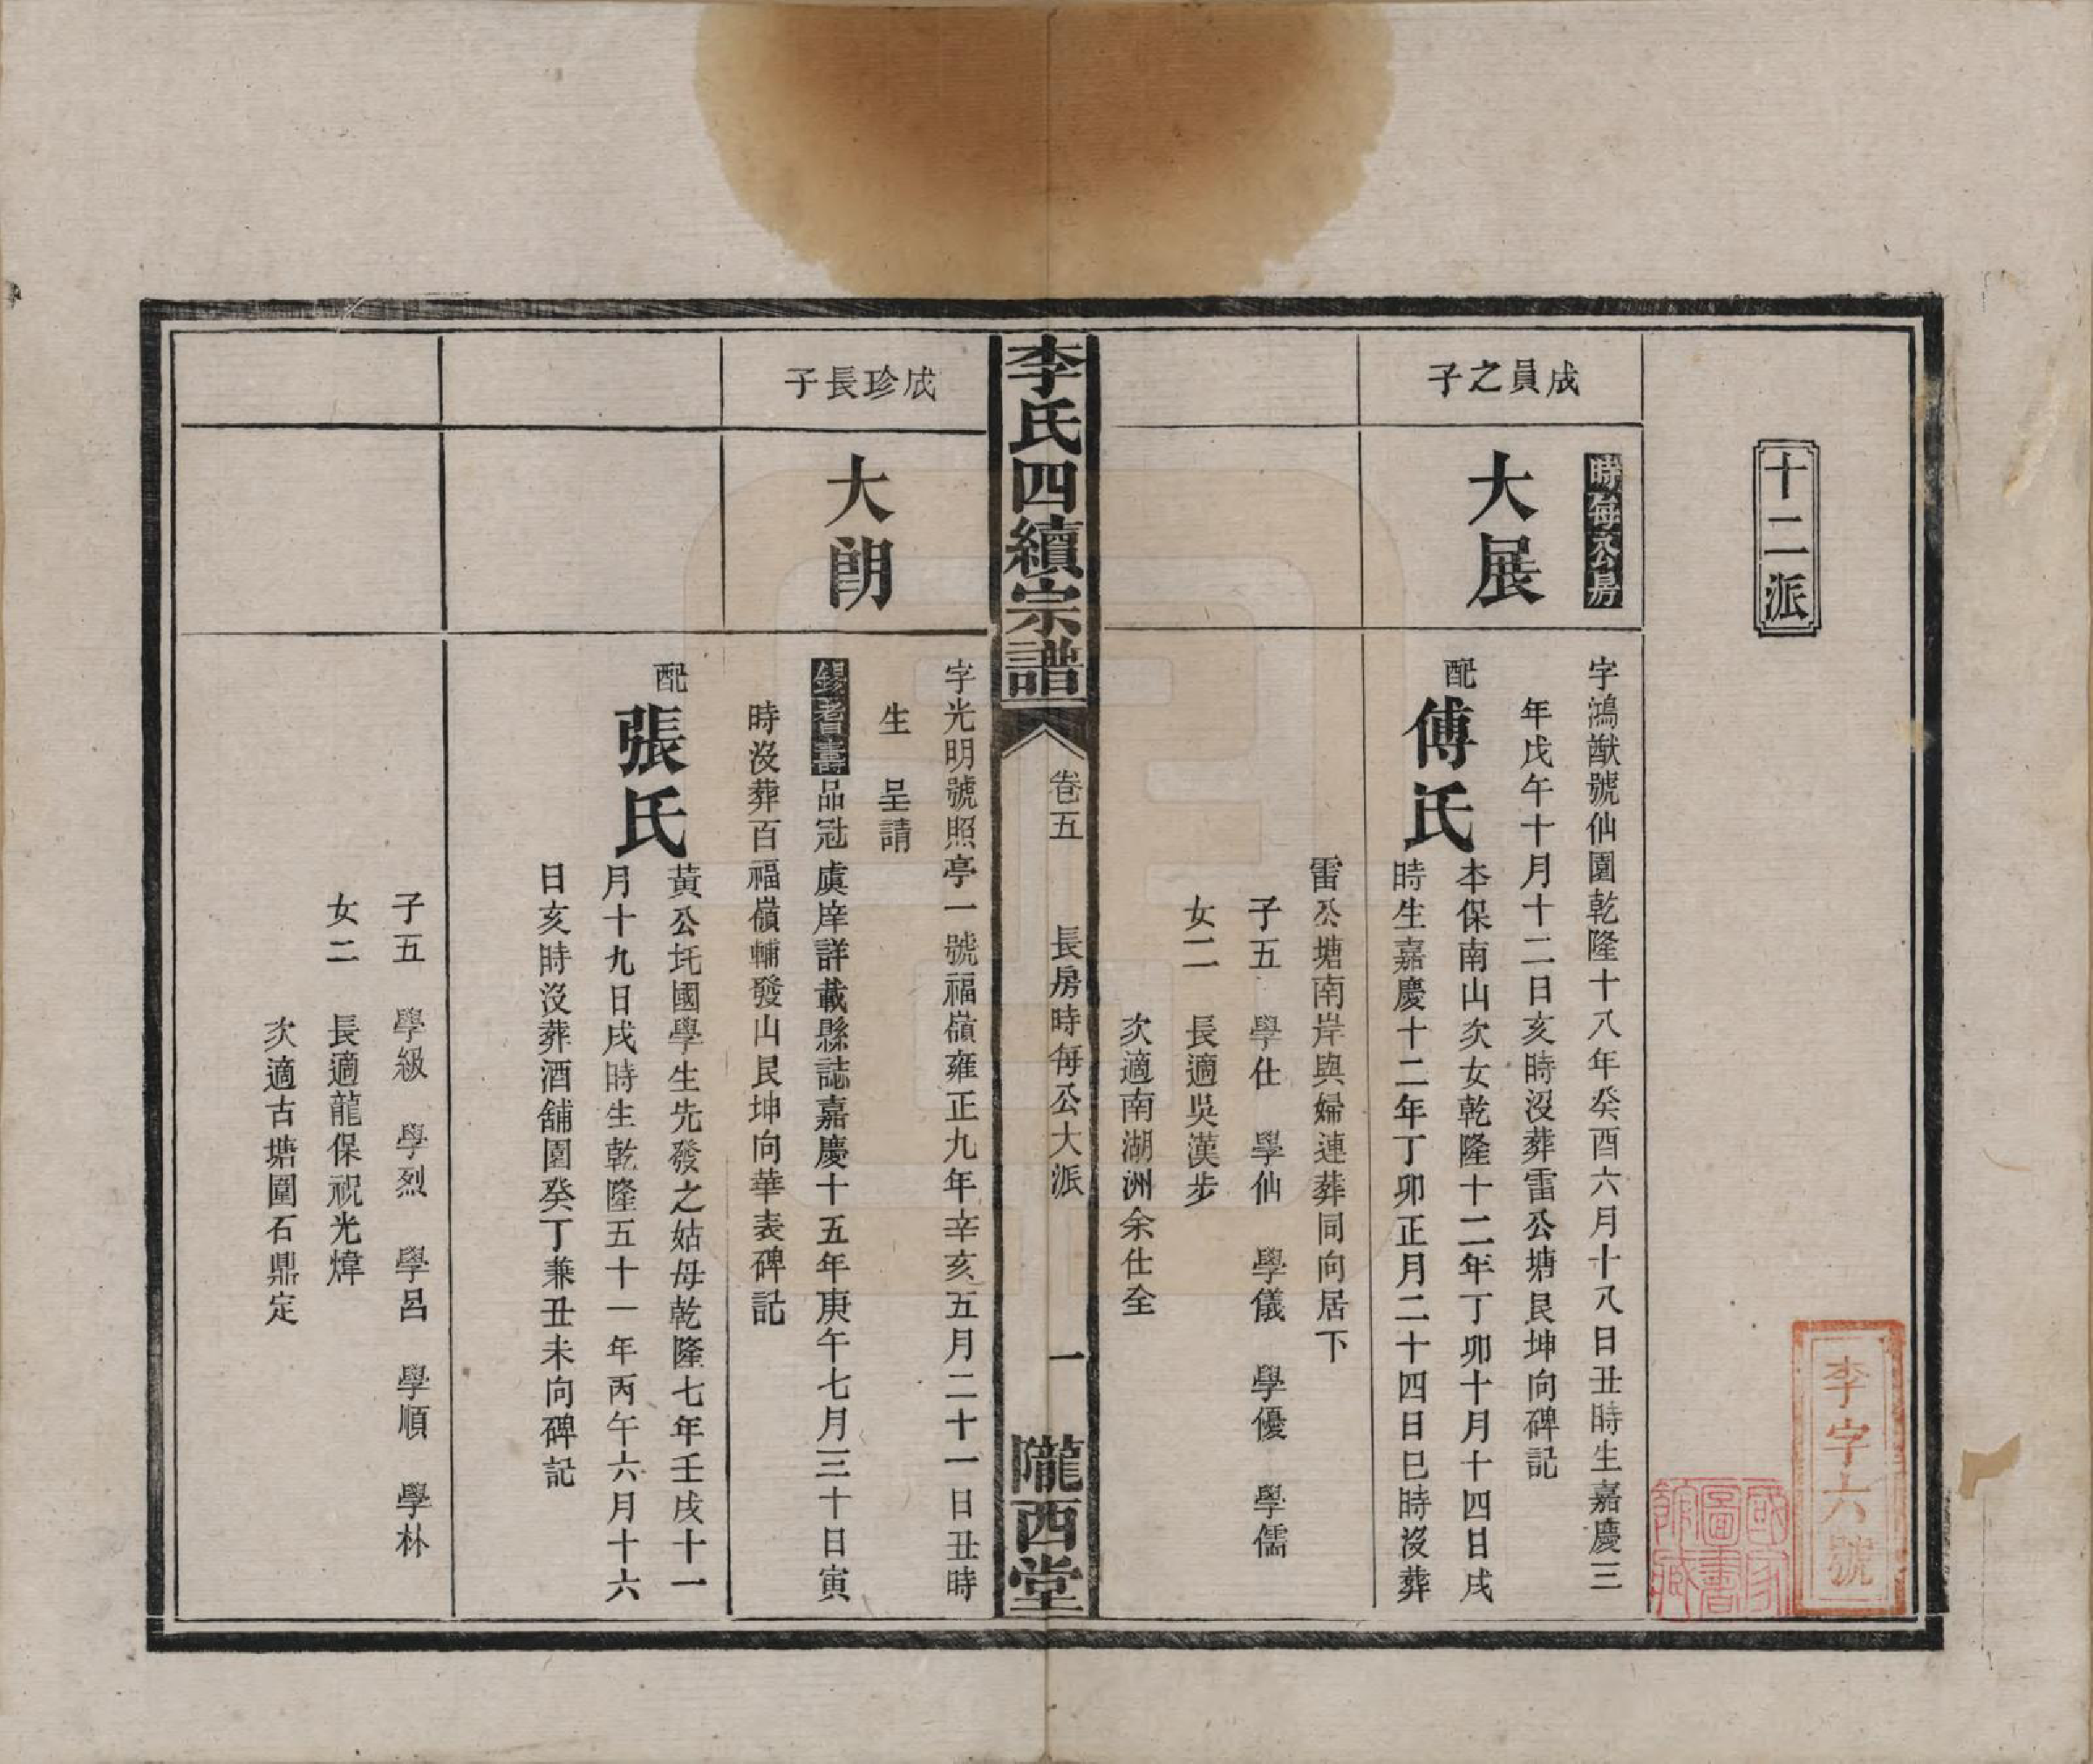 十二派
李字六號
國家圖書館藏
成員之子
時每公房
大展
字鴻猷號仙園乾隆十八年癸酉六月十八日丑時生嘉慶三
年戊午十月十二日亥時沒葬雷公塘艮坤向碑記
配傅氏
本保南山次女乾隆十二年丁卯十月十四日戌
時生嘉慶十二年丁卯正月二十四日巳時沒葬
雷公塘南岸與婦連葬同向居下
子五 學仕 學仙 學儀 學優 學儒
女二 長適吳漢步
次適南湖洲余仕全
李氏四續宗譜
卷五 長房時每公大派 一
隴西堂
成珍長子
大朗
字光明號照亭一號福嶺雍正九年辛亥五月二十一日丑時
生 呈請
錫耆員壽品冠虞庠詳載縣誌嘉慶十五年庚午七月三十日寅
時沒葬百福嶺輔發山艮坤向華表碑記
配張氏
黃公圫國學生先發之姑母乾隆七年壬戌十一
月十九日戌時生乾隆五十一年丙午六月十六
日亥時沒葬酒舖園癸丁兼丑未向碑記
子五 學級 學烈 學呂 學順 學林
女二 長適龍保祝光煒
次適古塘圍石鼎定